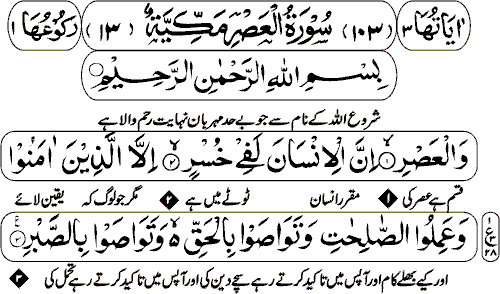 اٰيَاتُهَا ٣ (١٠٣) سُوْرَةُ الْعَصْرِ مَكِّيَّةٌ (١٣) رُكُوْعُهَا ١
بِسْمِ اللهِ الرَّحْمٰنِ الرَّحِيْمِ
شروع اللہ کے نام سے جو بے حد مہربان نہایت رحم والا ہے
وَالْعَصْرِ ۙ﴿۱﴾ اِنَّ الْاِنْسَانَ لَفِيْ خُسْرٍ ۙ﴿۲﴾ اِلَّا الَّذِيْنَ اٰمَنُوْا
قسم ہے عصر کی ۱ مقرر انسان ٹوٹے میں ہے ۲ مگر جو لوگ کہ یقین لائے
وَعَمِلُوا الصّٰلِحٰتِ وَتَوَاصَوْا بِالْحَقِّ ۙ۬ وَتَوَاصَوْا بِالصَّبْرِ ﴿۳﴾ ١ ع ٣ ٢٨
اور کیے بھلے کام اور آپس میں تاکید کرتے رہے سچے دین کی اور آپس میں تاکید کرتے رہے تحمل کی ۳